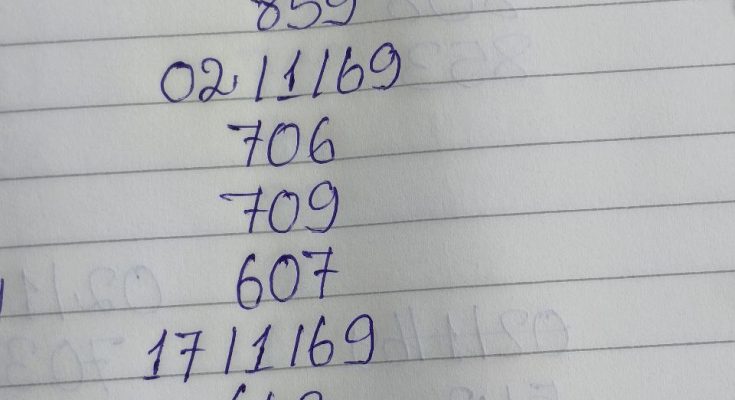 859
02/1/69
706
709
607
17/1/69